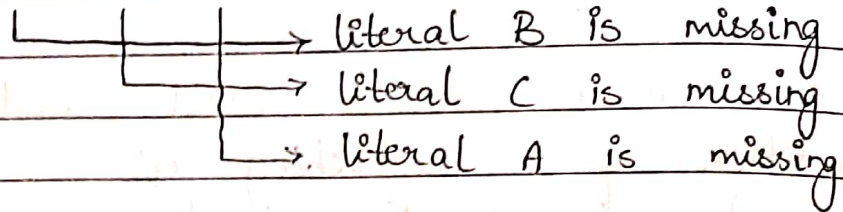 literal B is missing
literal C is missing
literal A is missing